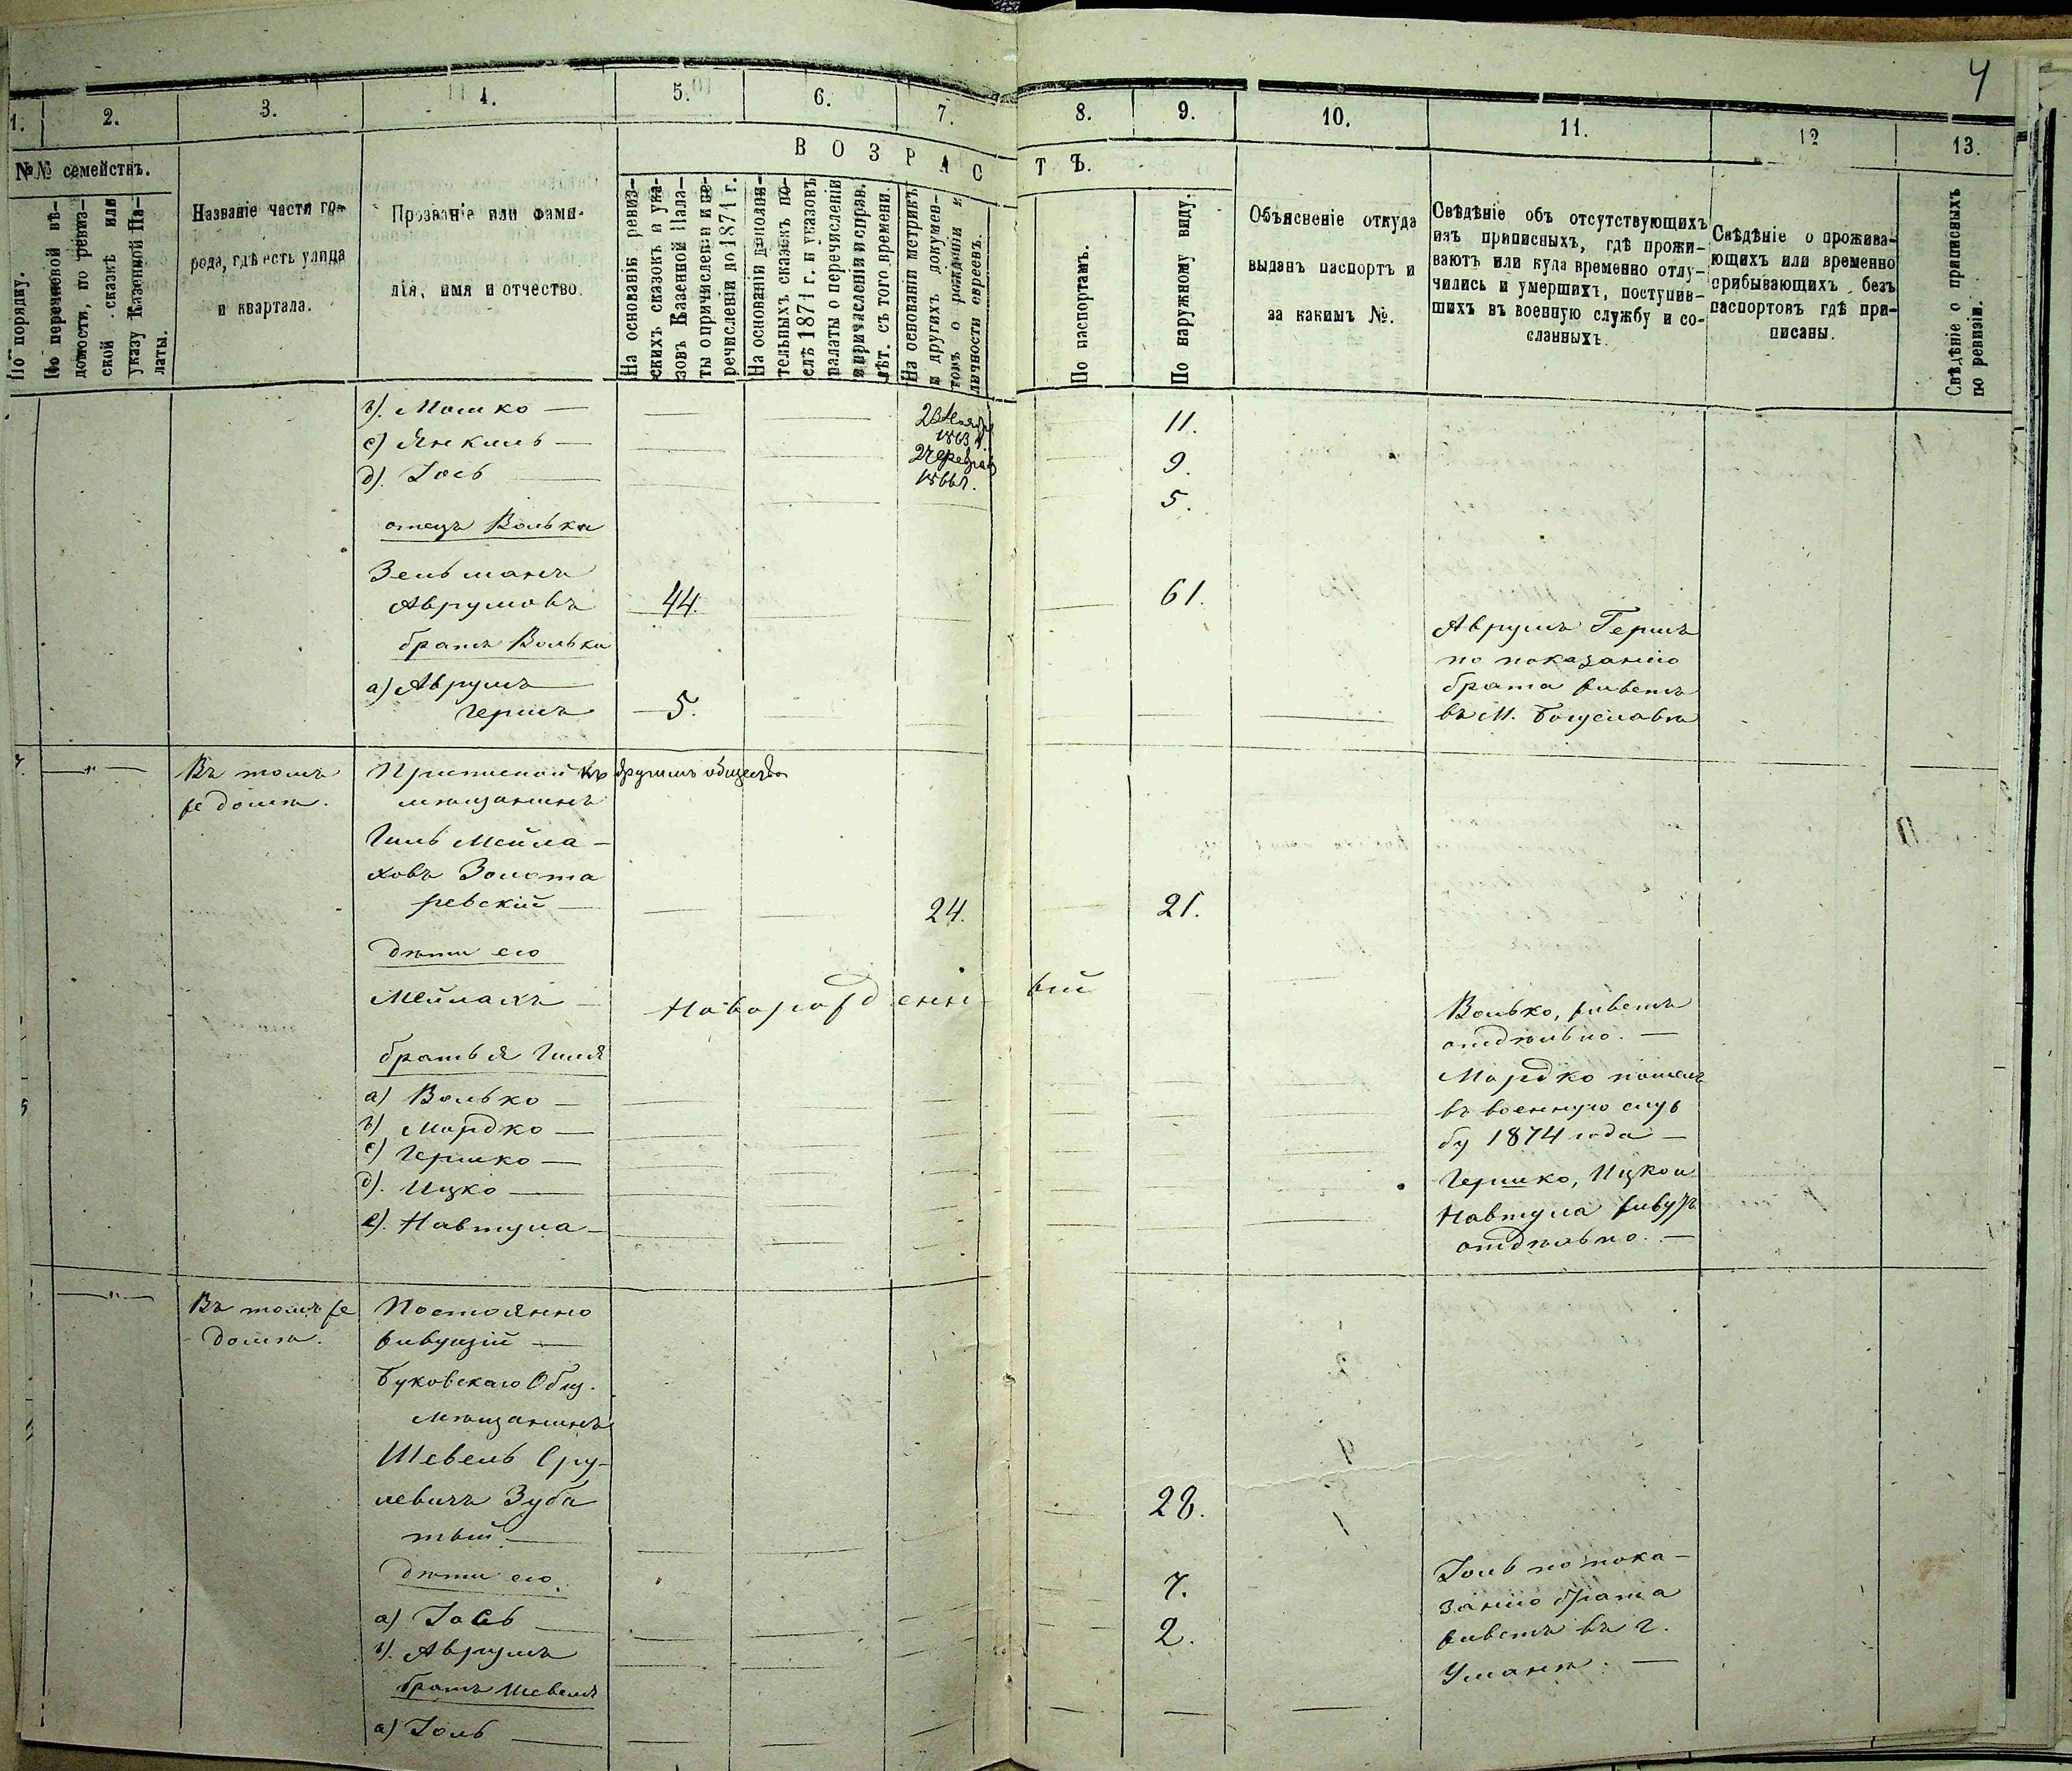 4
1.
2.
3.
4.
5.
6.
7.
8.
9.
10.
11.
12
13.
№№ семействъ.
По порядку.
По перечневой вѣ-
домости, по ревиз-
ской сказкѣ или
указу Казенной Па-
латы.
Названіе части го-
рода, гдѣ есть улица
и квартала.
Прозваніе или фами-
лія, имя и отчество.
ВОЗРАСТЪ.
На основаніи ревиз-
скихъ сказокъ и ука-
зовъ Казенной Пала-
ты о причисленіи и пе-
речисленіи до 1871 г.
На основаніи дополни-
тельныхъ сказокъ по-
слѣ 1871 г. и указовъ
палаты о перечисленіи
и причисленіи и справ.
лѣт. съ того времени.
На основаніи метрикъ
и другихъ докумен-
товъ о рожденіи и
личности евреевъ.
По паспортамъ.
По наружному виду.
Объясненіе откуда
выданъ паспортъ и
за какимъ №.
Свѣдѣніе объ отсутствующихъ
изъ приписныхъ, гдѣ прожи-
ваютъ или куда временно отлу-
чились и умершихъ, поступив-
шихъ въ военную службу и со-
сланныхъ.
Свѣдѣніе о прожива-
ющихъ или временно
прибывающихъ безъ
паспортовъ гдѣ при-
писаны.
Свѣдѣніе о приписныхъ
по ревизіи.
в). Мошко — 11.
с) Янкель — 1863 9.
д). Іось — 5.
отецъ Волька
Зельманъ
Аврумовъ 44. 61.
братъ Волька
а) Аврумъ
Гершъ 5.
Аврумъ Гершъ
по показанію
брата живетъ
въ М. Богуславѣ
Въ томъ
же домѣ.
Приписной къ другимъ обществ
мѣщанинъ
Гиль Мейла-
ховъ Золота
ревскій — 24. 21.
дѣти его
Мейлахъ — Новорожденный
братья Гиля
а) Волько —
в) Мордко —
с) Гершко —
д). Ицко —
е). Навтула —
Волько, живетъ
отдѣльно. —
Мордко пошелъ
въ военную служ
бу 1874 года —
Гершко, Ицко и
Навтула живутъ
отдѣльно. —
Въ томъ же
домѣ.
Постоянно
живущій —
Буковскаго Общ.
мѣщанинъ
Шевель Сру-
левичъ Зуба
тый. — 28.
дѣти его.
а) Іось — 7.
в). Аврумъ 2.
братъ Шевеля
а) Іоль —
Іоль по пока-
занію брата
живетъ въ г.
Уманѣ. —